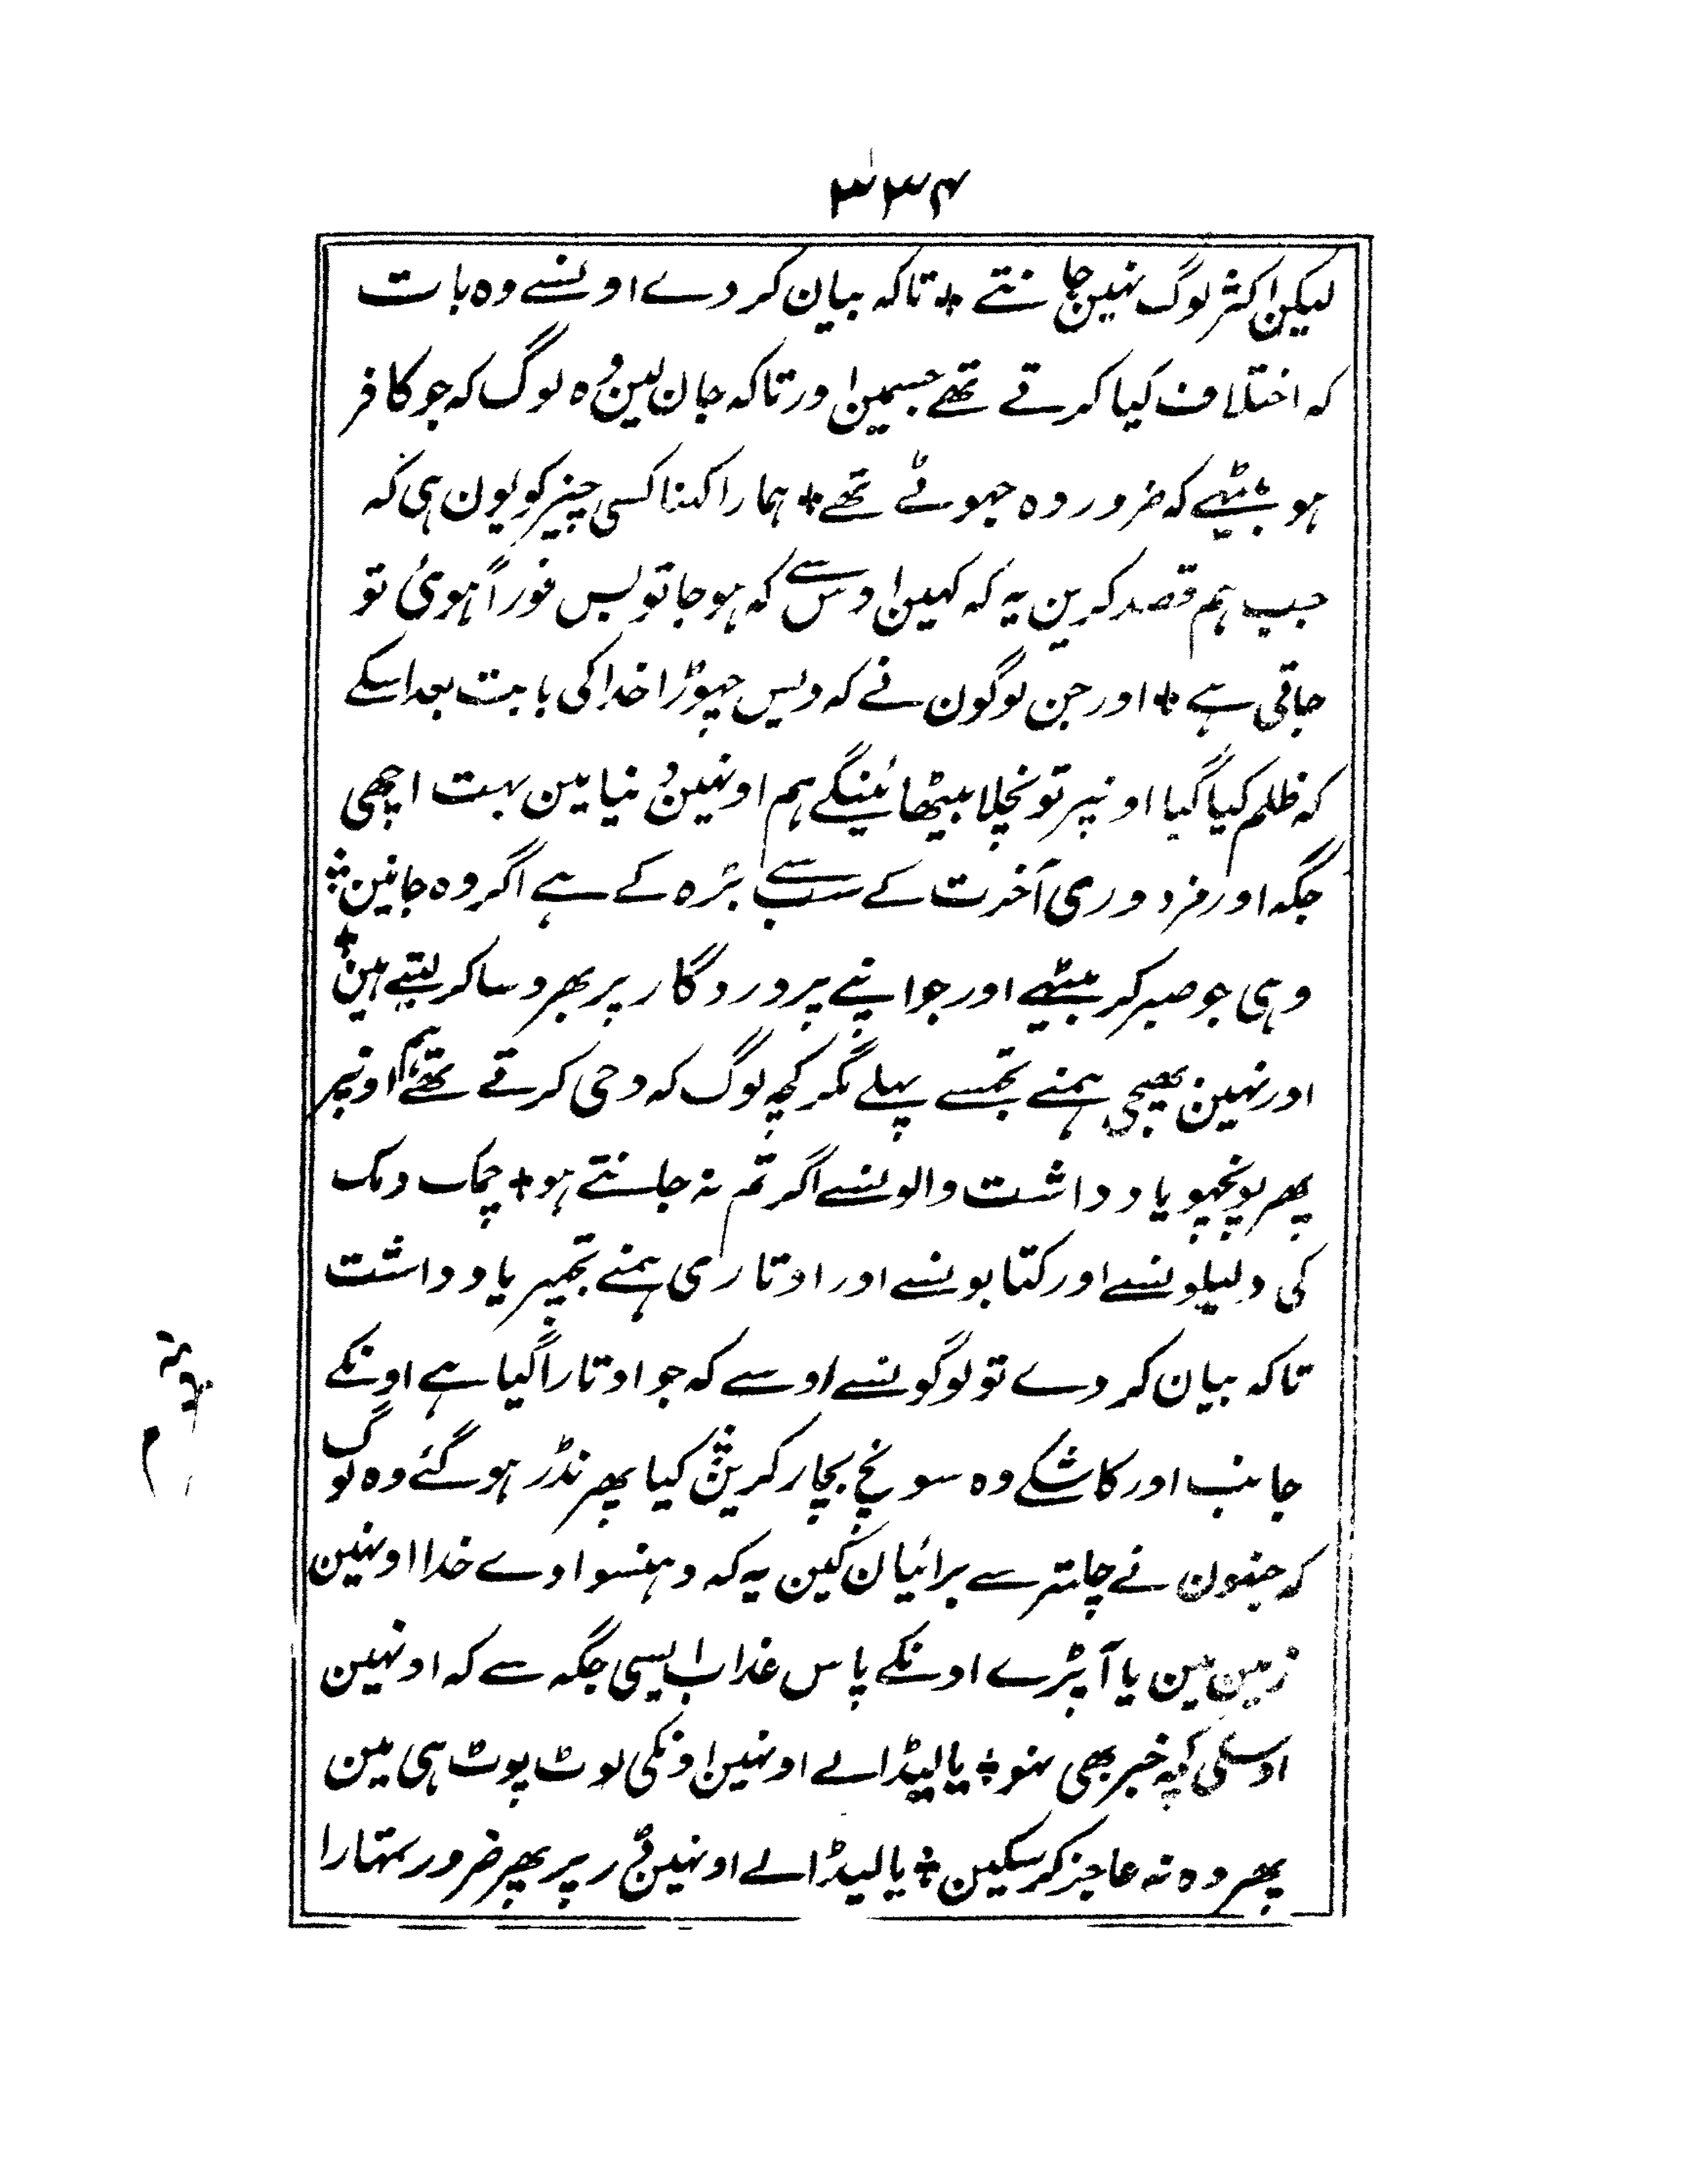 ۳۳۴
لیکن اکثر لوگ نہین جانتے + تاکہ بیان کر دے اونسے وہ بات
کہ اختلاف کیا کرتے تھے جسمین اور تاکہ جان لین وہ لوگ کہ جو کافر
ہو بیٹھے کہ ضرور وہ جہوٹے تھے + ہمارا کہنا کسی چیز کو یون ہی کہ
جب ہم قصد کرین یہ کہ کہین اوس سے کہ ہو جا تو بس فوراً ہوئی تو
جاتی ہے + اور جن لوگون نے کہ دیس چھوڑا خدا کی بابت بعد اسکے
کہ ظلم کیا گیا اونپر تو نچلا بیٹھائینگے ہم اونہین دنیا مین بہت اچھی
جگہ اور مزدوری آخرت کے سب سے بڑہ کے ہے اگر وہ جانین +
وہی جو صبر کر بیٹھے اور جو اپنے پروردگار پر بھروسا کر لیتے ہین +
اور نہین بھیجی ہمنے تجسے پہلے مگر کچھ لوگ کہ وحی کرتے تھے ہم اونپر
پھر پونچھو یادداشت والونسے اگر تم نہ جانتے ہو + چمک دمک
کی دلیلونسے اور کتابونسے اور اوتاری ہمنے تجھپر یادداشت
تاکہ بیان کر دے تو لوگونسے اوسے کہ جو اوتارا گیا ہے اونکے
جانب اور کاشکے وہ سونچ بچار کرین + کیا پھر نڈر ہو گئے وہ لوگ
کہ جنھون نے چلتر سے برائیان کین یہ کہ دہنسوا دے خدا اونہین
زمین مین یا آ پڑے اونکے پاس عذاب ایسی جگہ سے کہ اونہین
اوسکی کچھ خبر بھی نہو + یا لیڈالے اونہین اونکی لوٹ پوٹ ہی مین
پھر وہ نہ عاجز کر سکین + یا لیڈالے اونہین ڈر پر پھر ضرور تمہارا